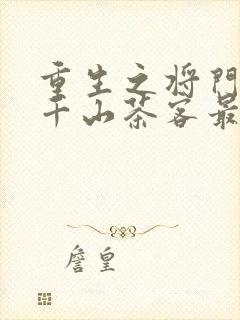 重生之将门
千山茶客最
詹皇